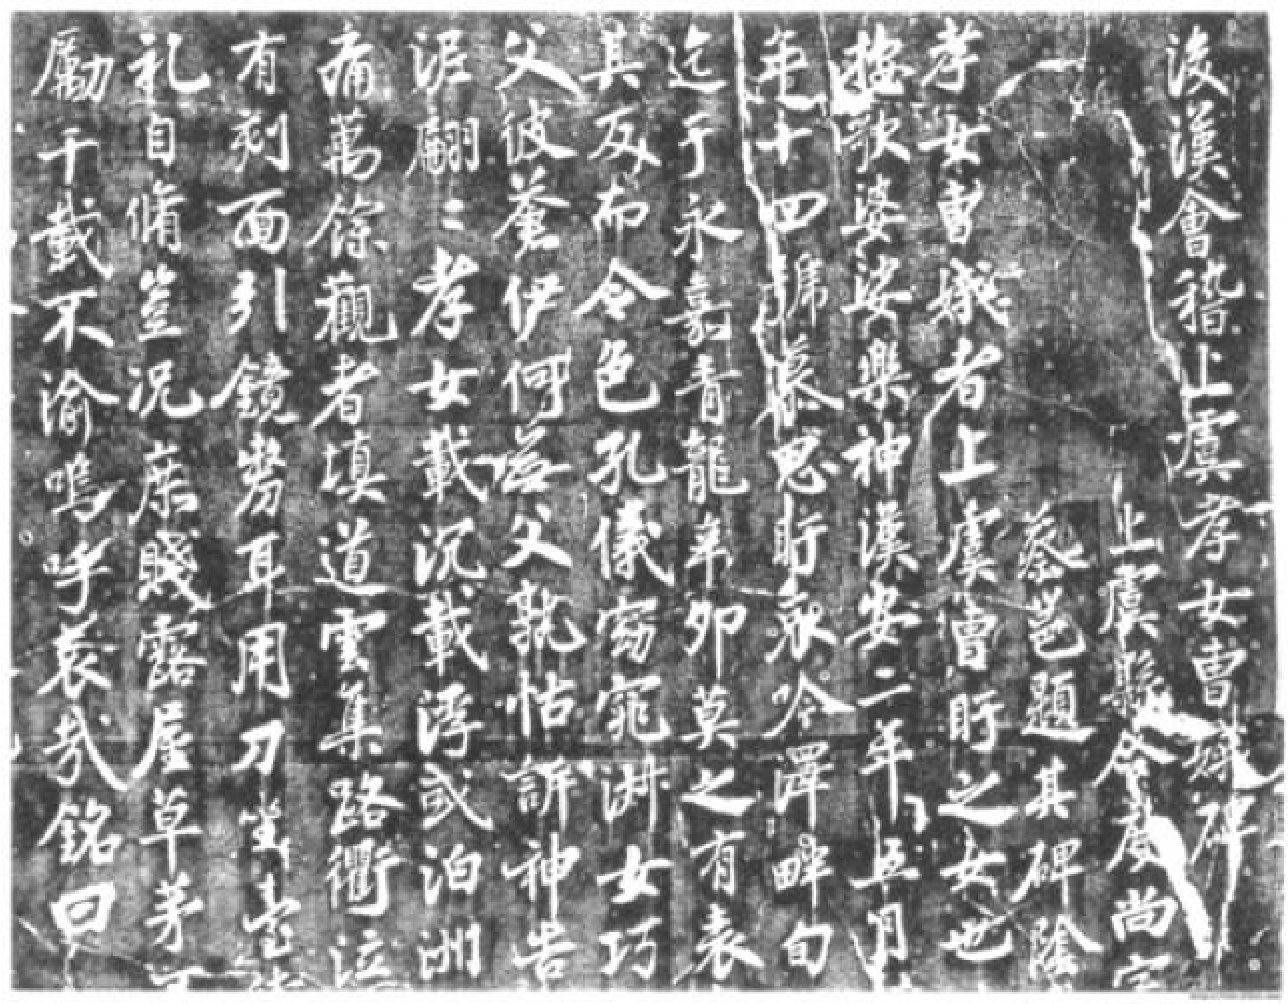 後漢會稽上虞孝女曹娥碑
上虞縣令度尚字
蔡邕題其碑陰
孝女曹娥者上虞曹盱之女也
按歌婆娑樂神漢安二年五月
年十四號慕思盱哀吟澤畔旬
迄于永嘉青龍辛卯莫之有表
其反而令色孔儀窈窕淑女巧
父彼蒼伊何無父孰怙訴神告
泥翩〻孝女載沉載浮或泊洲
痛萬餘觀者填道雲集路衢泣
有刻面引鏡剺耳用刀坐臺
礼自脩豈況庶賤露屋草茅
勵千載不渝嗚呼哀哉銘曰